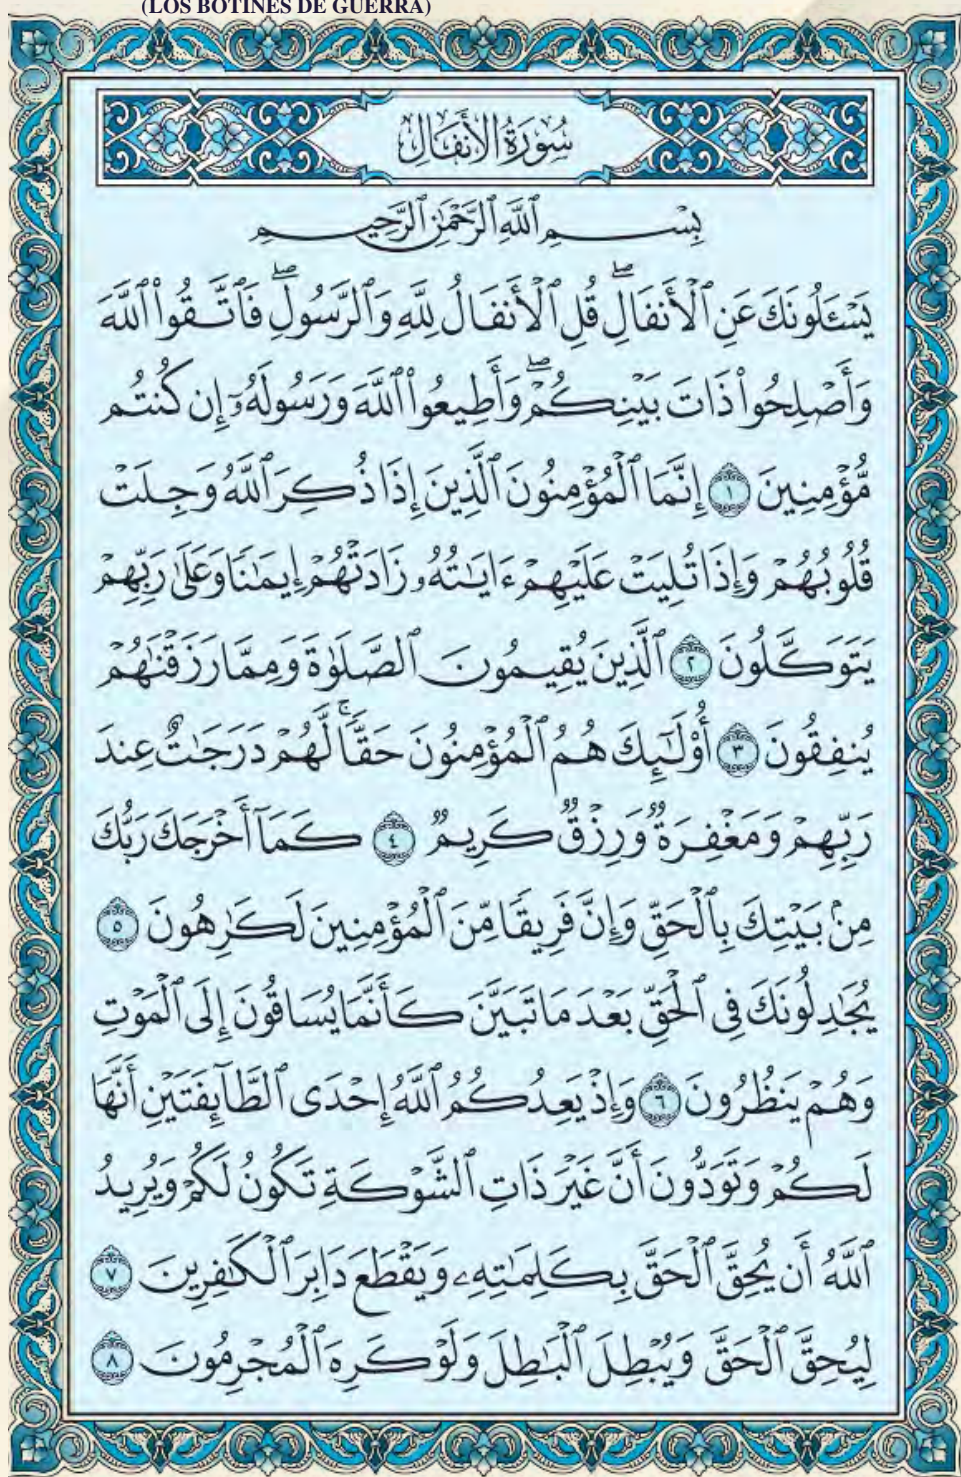 (LOS BOTINES DE GUERRA)
سُورَةُ الأَنفَالِ
بِسْمِ ٱللَّهِ ٱلرَّحْمَٰنِ ٱلرَّحِيمِ
يَسْـَٔلُونَكَ عَنِ ٱلْأَنفَالِۖ قُلِ ٱلْأَنفَالُ لِلَّهِ وَٱلرَّسُولِۖ فَٱتَّقُوا۟ ٱللَّهَ
وَأَصْلِحُوا۟ ذَاتَ بَيْنِكُمْۖ وَأَطِيعُوا۟ ٱللَّهَ وَرَسُولَهُۥٓ إِن كُنتُم
مُّؤْمِنِينَ ١ إِنَّمَا ٱلْمُؤْمِنُونَ ٱلَّذِينَ إِذَا ذُكِرَ ٱللَّهُ وَجِلَتْ
قُلُوبُهُمْ وَإِذَا تُلِيَتْ عَلَيْهِمْ ءَايَٰتُهُۥ زَادَتْهُمْ إِيمَٰنًا وَعَلَىٰ رَبِّهِمْ
يَتَوَكَّلُونَ ٢ ٱلَّذِينَ يُقِيمُونَ ٱلصَّلَوٰةَ وَمِمَّا رَزَقْنَٰهُمْ
يُنفِقُونَ ٣ أُو۟لَٰٓئِكَ هُمُ ٱلْمُؤْمِنُونَ حَقًّاۚ لَّهُمْ دَرَجَٰتٌ عِندَ
رَبِّهِمْ وَمَغْفِرَةٌ وَرِزْقٌ كَرِيمٌ ٤ كَمَآ أَخْرَجَكَ رَبُّكَ
مِنۢ بَيْتِكَ بِٱلْحَقِّ وَإِنَّ فَرِيقًا مِّنَ ٱلْمُؤْمِنِينَ لَكَٰرِهُونَ ٥
يُجَٰدِلُونَكَ فِى ٱلْحَقِّ بَعْدَ مَا تَبَيَّنَ كَأَنَّمَا يُسَاقُونَ إِلَى ٱلْمَوْتِ
وَهُمْ يَنظُرُونَ ٦ وَإِذْ يَعِدُكُمُ ٱللَّهُ إِحْدَى ٱلطَّآئِفَتَيْنِ أَنَّهَا
لَكُمْ وَتَوَدُّونَ أَنَّ غَيْرَ ذَاتِ ٱلشَّوْكَةِ تَكُونُ لَكُمْ وَيُرِيدُ
ٱللَّهُ أَن يُحِقَّ ٱلْحَقَّ بِكَلِمَٰتِهِۦ وَيَقْطَعَ دَابِرَ ٱلْكَٰفِرِينَ ٧
لِيُحِقَّ ٱلْحَقَّ وَيُبْطِلَ ٱلْبَٰطِلَ وَلَوْ كَرِهَ ٱلْمُجْرِمُونَ ٨